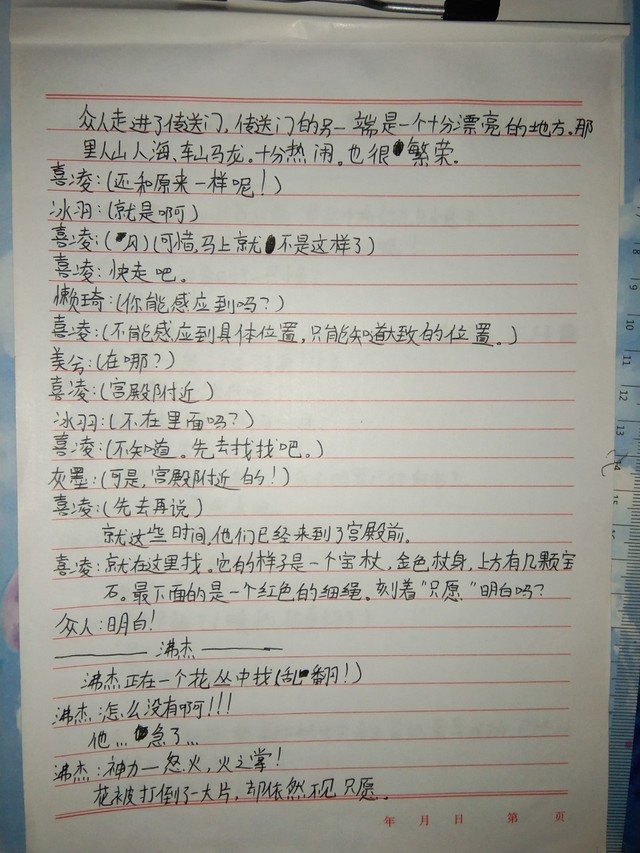 众人走进了传送门，传送门的另一端是一个十分漂亮的地方。那
里人山人海、车山马龙。十分热闹。也很繁荣。
喜凌：(还和原来一样呢！)
冰羽：(就是啊)
喜凌：(风)(可惜，马上就不是这样了)
喜凌：快走吧。
懒琦：(你能感应到吗？)
喜凌：(不能感应到具体位置，只能知道大致的位置。)
美兮：(在哪？)
喜凌：(宫殿附近)
冰羽：(不在里面吗？)
喜凌：(不知道。先去找找吧。)
灰墨：(可是，宫殿附近的！)
喜凌：(先去再说)
就这些时间，他们已经来到了宫殿前。
喜凌：就在这里找。它的样子是一个宝杖，金色杖身，上方有几颗宝
石。最下面的是一个红色的细绳。刻着“只愿”明白吗？
众人：明白！
——— 沸杰 ———
沸杰正在一个花丛中找(乱翻！)
沸杰：怎么没有啊！！！
他…急了…
沸杰：神力—怒火，火之掌！
花被打倒了一大片，却依然不见只愿。
年 月 日 第 页
8
9
10
11
12
13
14
15